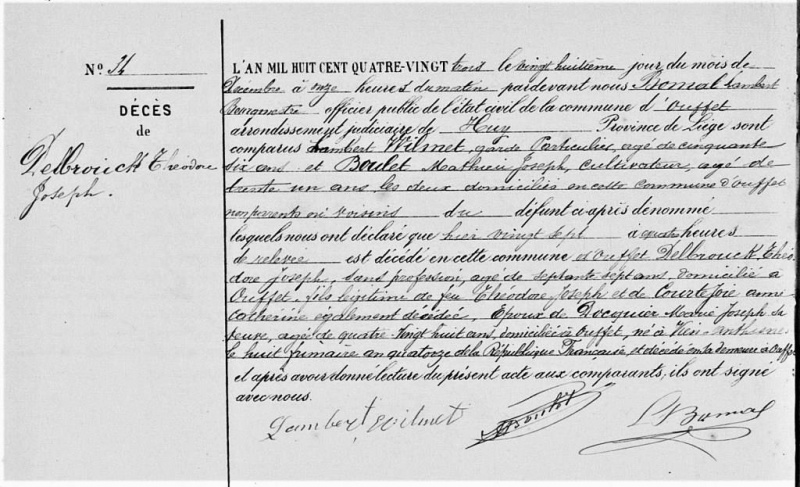 N.º 34
DÉCÈS
de
Delbrouck Théodore
Joseph.
L'AN MIL HUIT CENT QUATRE-VINGT trois le vingt huitième jour du mois de
Décembre à onze heures du matin pardevant nous Bomal Lambert
Bourgmestre officier public de l'état civil de la commune d'Ouffet
arrondissement judiciaire de Huy Province de Liége sont
comparus Lambert Wilmet, garde Particulier, agé de cinquante
six ans et Boulet Mathieu Joseph, cultivateur, agé de
trente un ans les deux domiciliés en cette commune d'Ouffet
non parents ni voisins du défunt ci-après dénommé
lesquels nous ont déclaré que hier vingt sept à quatre heures
de relevée est décédé en cette commune d'Ouffet Delbrouck Théo
dore Joseph, sans profession, agé de septante sept ans domicilié à
Ouffet, fils légitime de feu Théodore Joseph et de Courtejoie anne
catherine également décédée, Epoux de Docquier Marie Joseph sa
veuve, agée de quatre vingt huit ans, domiciliée à Ouffet, né à
le huit frumaire an quatorze de la République Française, et décédé en sa demeure à Ouffet
et après avoir donné lecture du présent acte aux comparants, ils ont signé
avec nous.
Lambert Wilmet Boulet L Bomal